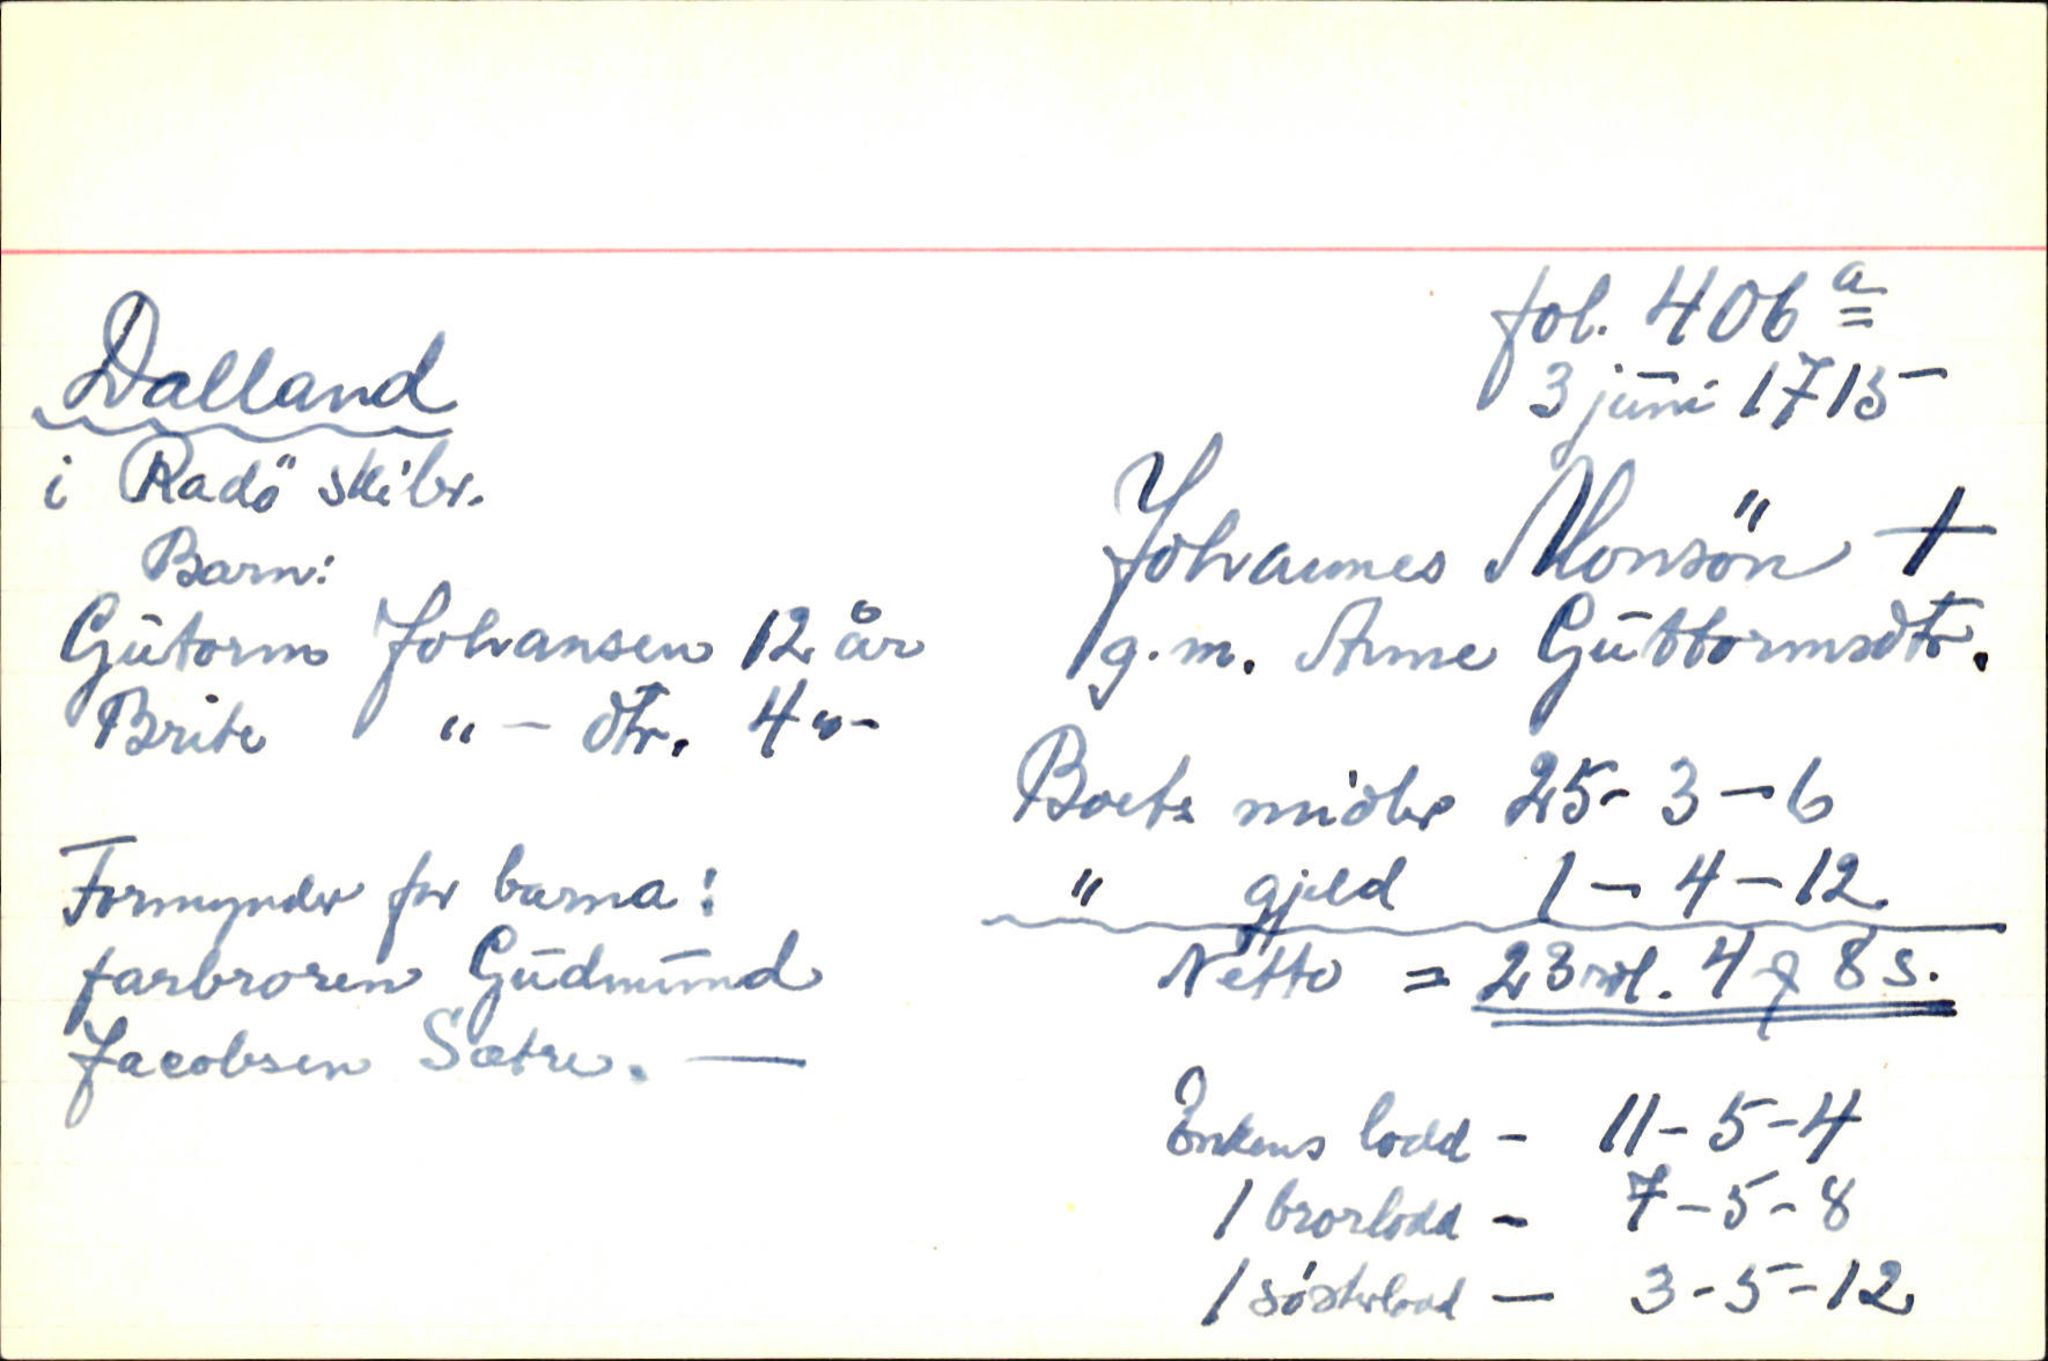 fol. 406 a
3 juni 1715
Dalland
i Radö skibr.
Barn:
Gutorm Johansen 12 år
Brite " - dtr. 4 " -
Formynder for barna:
farbroren Gudmund
Jacobsen Sætre. —
Johannes Monsön +
g. m. Anne Guttormsdtr.
Boets midler 25 - 3 - 6
" gjeld 1 - 4 - 12
Netto = 23 rdl. 4 ƒ 8 s.
Enkens lodd - 11 - 5 - 4
1 brorlodd - 7 - 5 - 8
1 sösterlodd - 3 - 5 - 12